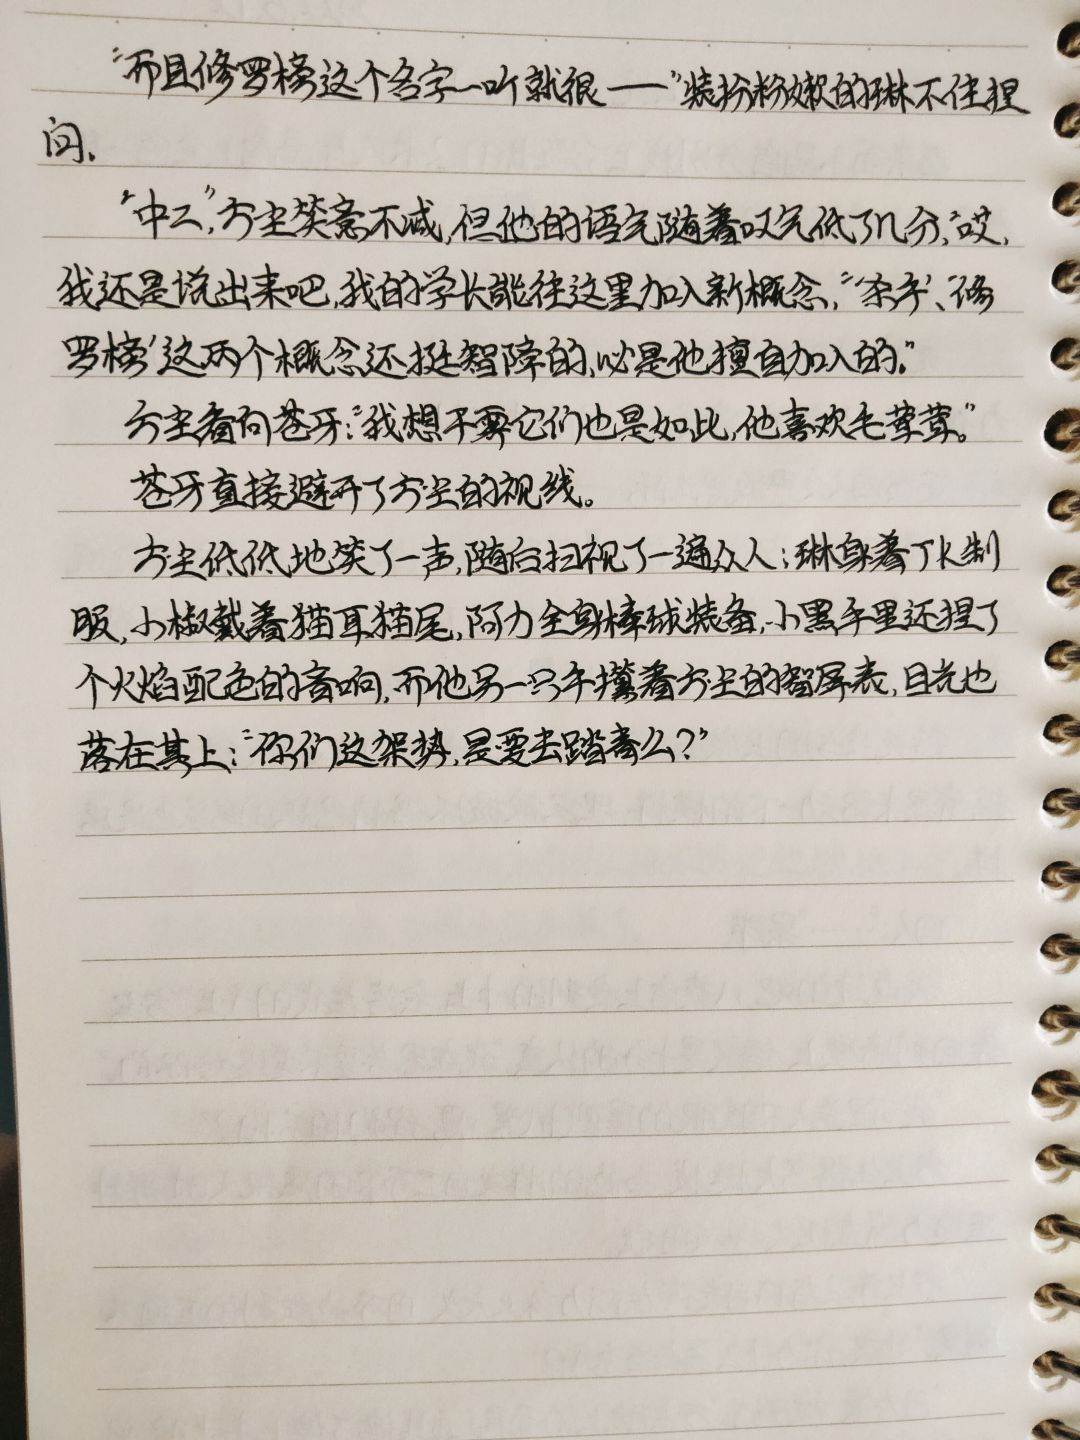 “而且修罗榜这个名字一听就很——”装扮粉嫩的琳不住捏
问。
“中二”，方尘笑意不减，但他的语气随着叹气低了几分，“哎，
我还是说出来吧，我的学长能往这里加入新概念，“‘杀手’、‘修
罗榜’这两个概念还挺智障的，必是他擅自加入的。”
方尘看向苍牙：“我想不要它们也是如此，他喜欢毛茸茸。”
苍牙直接避开了方尘的视线。
方尘低低地笑了一声，随后扫视了一遍众人：琳身着JK制
服，小椒戴着猫耳猫尾，阿力全身棒球装备，小黑手里还捏了
个火焰配色的音响，而他另一只手攥着方尘的智屏表，目光也
落在其上：“你们这架势，是要去踏春么？”